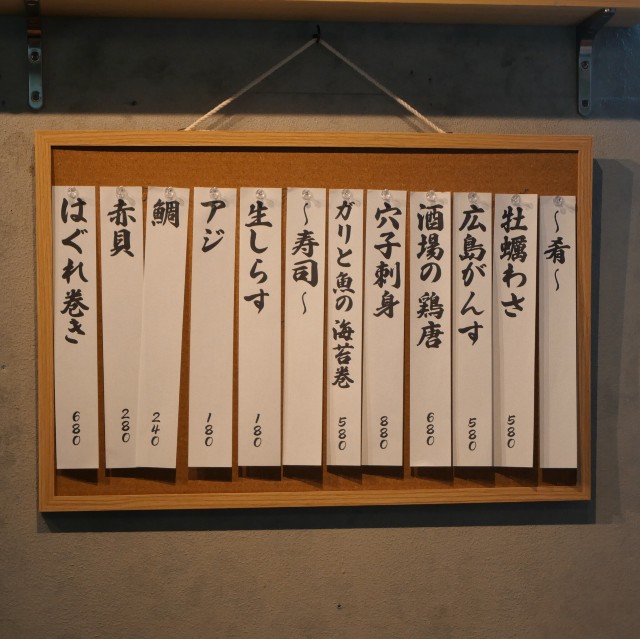 ～肴～
牡蠣わさ 580
広島がんす 580
酒場の鶏唐 680
穴子刺身 880
ガリと魚の海苔巻 580
～寿司～
生しらす 180
アジ 180
鯛 240
赤貝 280
はぐれ巻き 680